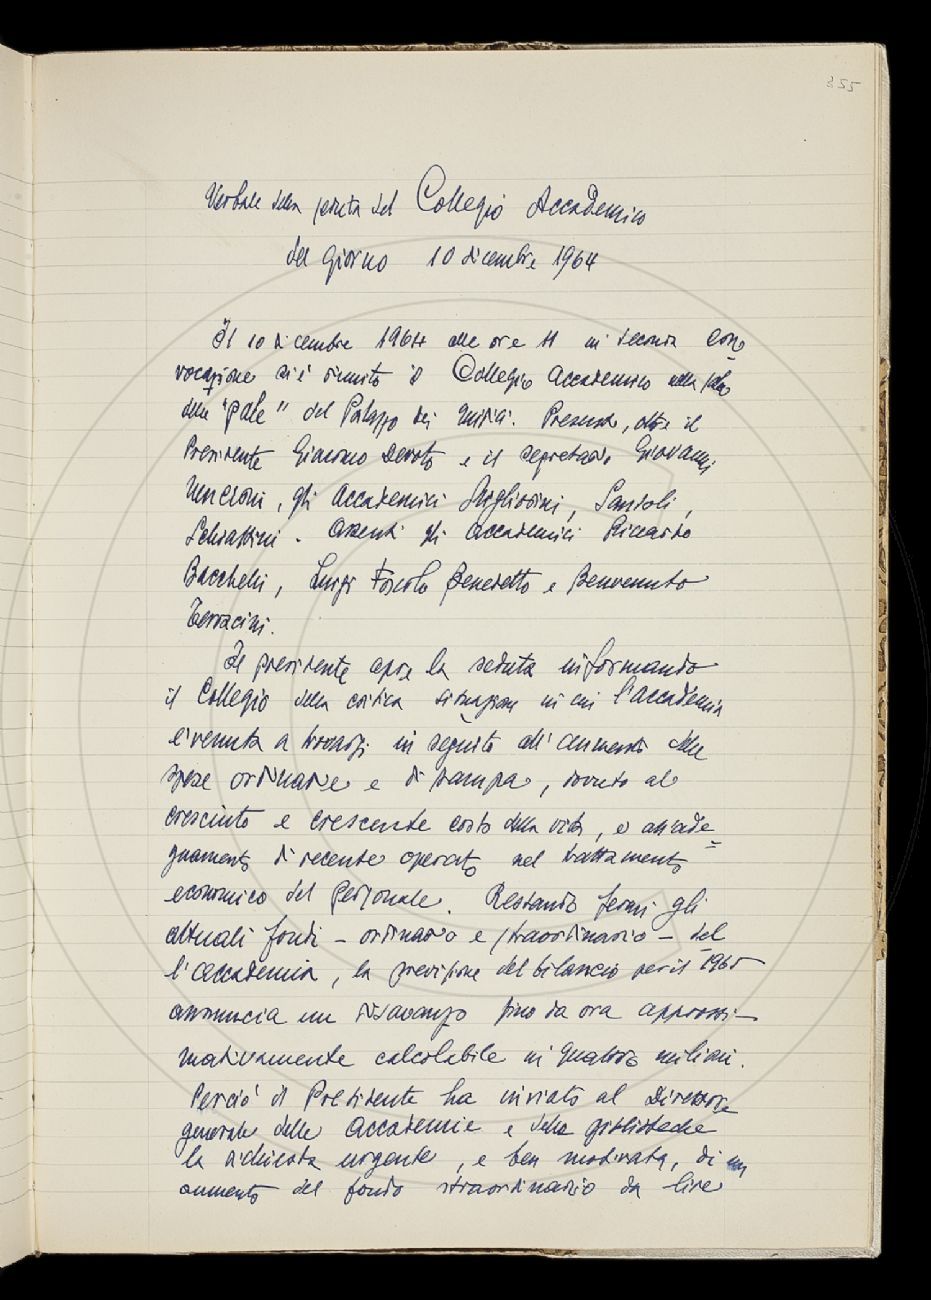 355
Verbale della seduta del Collegio Accademico
del giorno 10 dicembre 1964
Il 10 dicembre 1964 alle ore 11 in seconda con=
vocazione si è riunito il Collegio Accademico nella sala
delle "pale" del Palazzo dei Giudici. Presenti, oltre il
Presidente Giacomo Devoto e il segretario Giovanni
Nencioni, gli Accademici Migliorini, Sansoli,
Schiaffini. Assenti gli Accademici Riccardo
Bacchelli, Luigi Foscolo Benedetto e Benvenuto
Terracini.
Il presidente apre la seduta informando
il Collegio della critica situazione in cui l'accademia
è venuta a trovarsi in seguito all'aumento delle
spese ordinarie e di stampa, dovuto al
cresciuto e crescente costo della vita, e all'ade=
guamento di recente operato nel trattamento
economico del personale. Restando fermi gli
attuali fondi – ordinario e straordinario – del
l'accademia, la previsione del bilancio per il 1965
annuncia un disavanzo fino da ora approssi–
mativamente calcolabile in quattro milioni.
Perciò il Presidente ha inviato al Direttore
generale delle Accademie e delle biblioteche
la richiesta urgente, e ben motivata, di un
aumento del fondo straordinario da lire